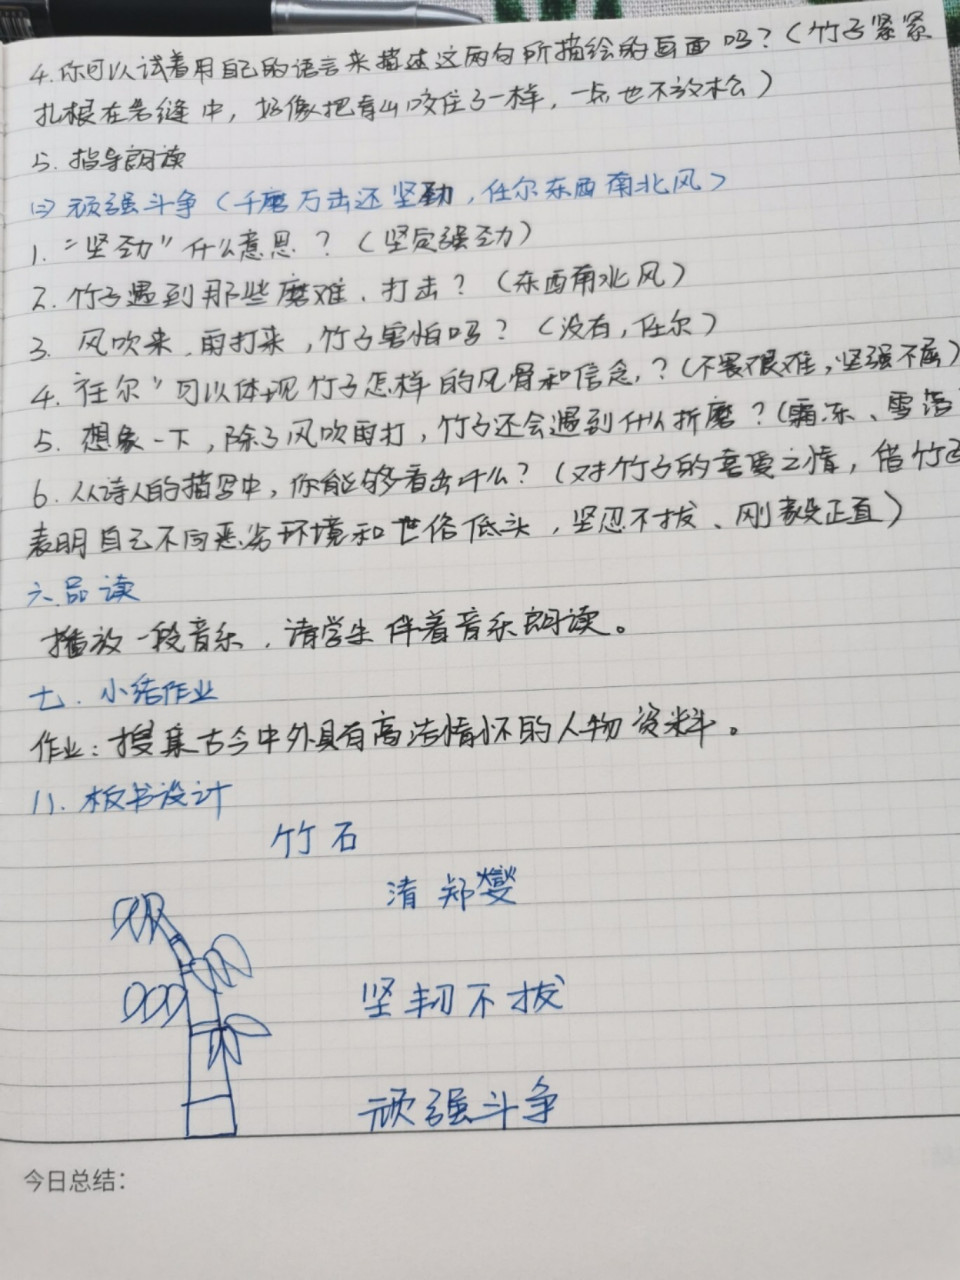 4.你可以试着用自己的语言来描述这两句所描绘的画面吗？(竹子紧紧
扎根在岩缝中，好像把青山咬住了一样，一点也不放松)
5.指导朗读
(二)顽强斗争(千磨万击还坚劲，任尔东西南北风)
1."坚劲"什么意思？(坚定强劲)
2.竹子遇到那些磨难、打击？(东西南北风)
3.风吹来、雨打来，竹子害怕吗？(没有，任尔)
4."任尔"可以体现竹子怎样的风骨和信念，？(不畏艰难，坚强不屈)
5.想象一下，除了风吹雨打，竹子还会遇到什么折磨？(霜冻、雪
6.从诗人的描写中，你能够看出什么？(对竹子的喜爱之情，借竹
表明自己不向恶劣环境和世俗低头，坚忍不拔、刚毅正直)
六.品读
播放一段音乐，请学生伴着音乐朗读。
七.小结作业
作业：搜集古今中外具有高洁情怀的人物资料。
八.板书设计
竹石
清 郑燮
坚韧不拔
顽强斗争
今日总结：